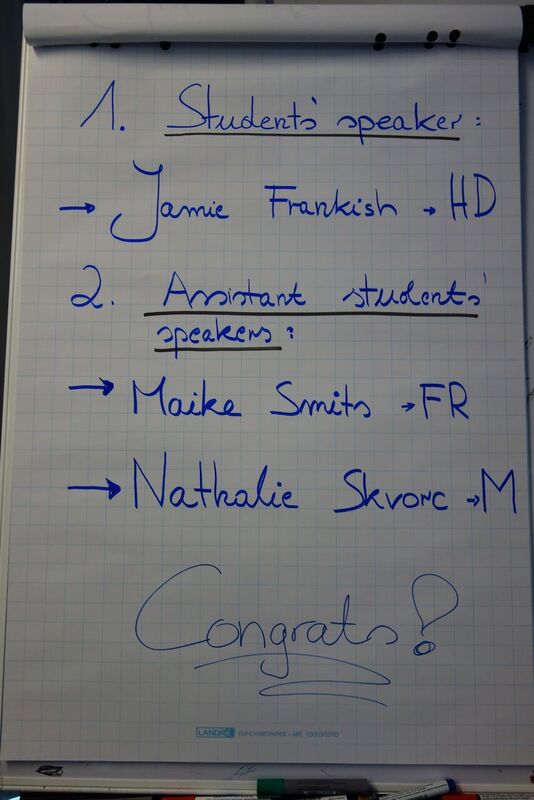 1. Students' speaker:
→ Jamie Frankish → HD
2. Assistant students'
speakers:
→ Maike Smits → FR
→ Nathalie Skvorc → M
Congrats!
LANDRÉ FLIP-CHART-PAPER • ART. 100050590